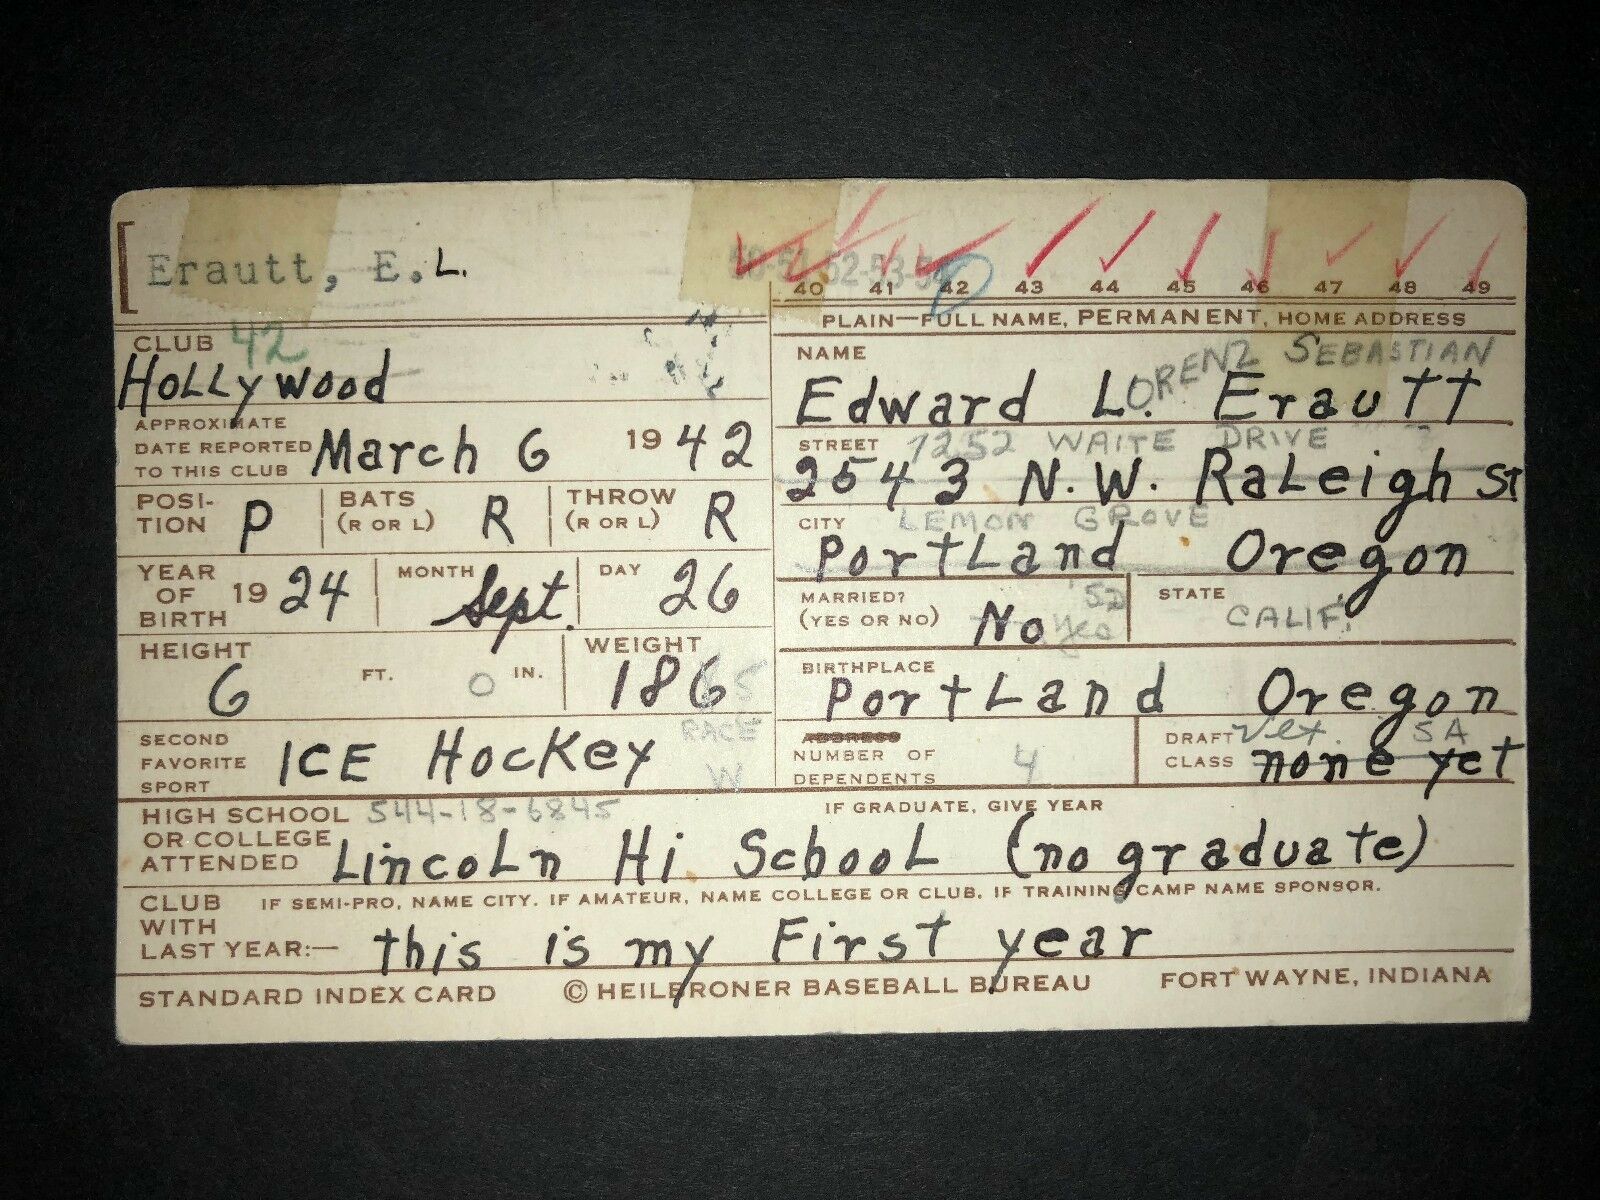 Erautt, E. L.
50-51-52-53-54
40 41 42 43 44 45 46 47 48 49
PLAIN—FULL NAME, PERMANENT, HOME ADDRESS
CLUB 42
HOLLYWOOD
NAME LORENZ SEBASTIAN
Edward L. Erautt
APPROXIMATE
DATE REPORTED
TO THIS CLUB March 6 1942
STREET 7252 WAITE DRIVE
2543 N.W. Raleigh St
POSI-
TION P
BATS
(R OR L) R
THROW
(R OR L) R
CITY LEMON GROVE
Portland Oregon
YEAR
OF
BIRTH 1924
MONTH Sept.
DAY 26
MARRIED?
(YES OR NO) No Yes 52
STATE CALIF.
HEIGHT
6 FT. 0 IN.
WEIGHT
186
BIRTHPLACE
Portland Oregon
SECOND
FAVORITE
SPORT ICE Hockey
RACE
W
ADDRESS
NUMBER OF
DEPENDENTS 4
DRAFT
CLASS Vet. 5A
none yet
HIGH SCHOOL
OR COLLEGE
ATTENDED 544-18-6845
IF GRADUATE, GIVE YEAR
Lincoln Hi School (no graduate)
CLUB
WITH
LAST YEAR:—
IF SEMI-PRO, NAME CITY. IF AMATEUR, NAME COLLEGE OR CLUB. IF TRAINING CAMP NAME SPONSOR.
this is my First year
STANDARD INDEX CARD © HEILBRONER BASEBALL BUREAU FORT WAYNE, INDIANA